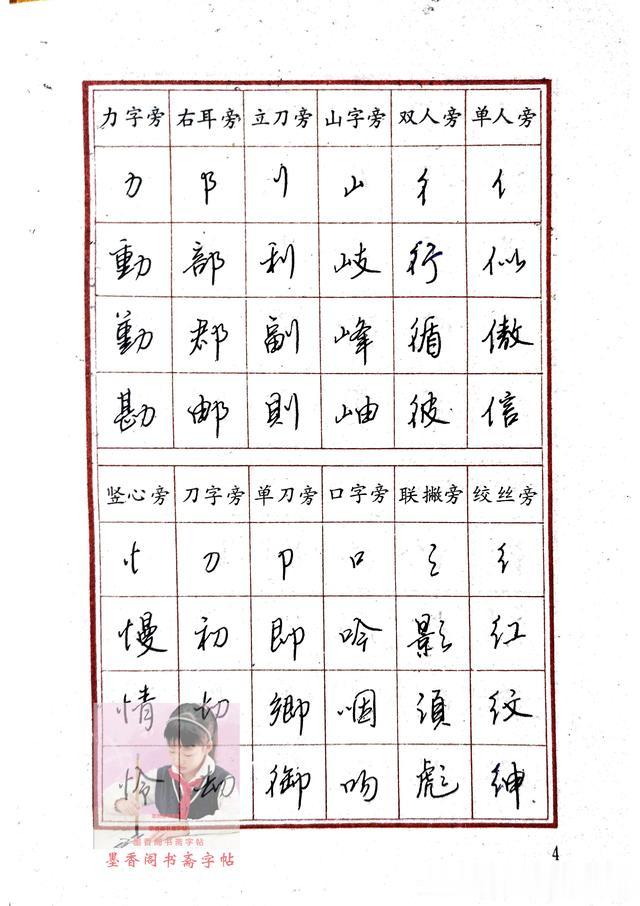 力字旁 右耳旁 立刀旁 山字旁 双人旁 单人旁
力 阝 刂 山 彳 亻
動 部 利 岐 行 似
勤 郡 副 峰 循 傲
勘 郵 則 岫 彼 信
竖心旁 刀字旁 单刀旁 口字旁 联撇旁 绞丝旁
忄 刀 卩 口 彡 纟
慢 初 即 吟 影 红
情 切 卿 咽 須 纹
怜 劫 御 吻 彪 绅
墨香阁书斋字帖
墨香阁书斋字帖
4